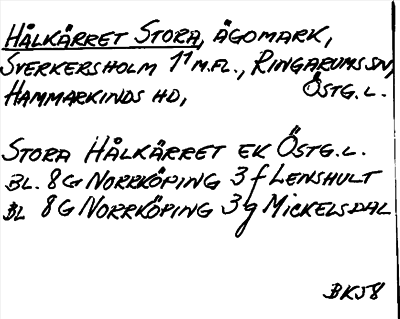 HÅLKÄRRET STORA, ÄGOMARK,
SVERKERSHOLM 1¹ M.FL., RINGARUMS SN,
HAMMARKINDS HD, ÖSTG. L.
STORA HÅLKÄRRET EK ÖSTG. L.
BL. 8G NORRKÖPING 3 f LENSHULT
BL 8G NORRKÖPING 3g MICKELSDAL
BKJ8